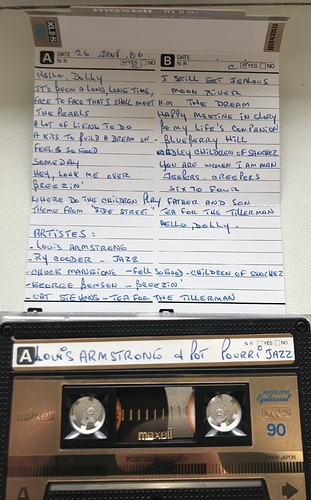 maxell
XLII-S
maxell
A DATE 26 JAN'86 B DATE
N.R YES NO N.R YES NO
HELLO DOLLY
I STILL GET JEALOUS
IT'S BEEN A LONG, LONG TIME,
MOON RIVER
FACE TO FACE THAT I SHALL MEET HIM
THE DREAM
THE PEARLS
HAPPY MEETING IN GLORY
A LOT OF LIVING TO DO
BE MY LIFE'S COMPANION
A KISS TO BUILD A DREAM ON -
BLUEBERRY HILL
FEELS SO GOOD
MEDLEY CHILDREN OF SANCHEZ
SOMEDAY
YOU ARE WOMEN I AM MAN
HEY, LOOK ME OVER
JEEPERS - CREEPERS
BREEZIN'
SIX TO FOUR
WHERE DO THE CHILDREN PLAY
FATHER AND SON
THEME FROM "SIDE STREET"
TEA FOR THE TILLERMAN
HELLO DOLLY.
ARTISTES :
- LOUIS ARMSTRONG
- RY COODER - JAZZ
- CHUCK MANGIONE - FELL SO GOOD - CHILDREN OF SANCHEZ
- GEORGE BENSON - BREEZIN'
- CAT STEVENS - TEA FOR THE TILLERMAN
N.R YES NO
A LOUIS ARMSTRONG & POT POURRI JAZZ
maxell
Epitaxial
XLII-S
90
maxell
JAPAN
A